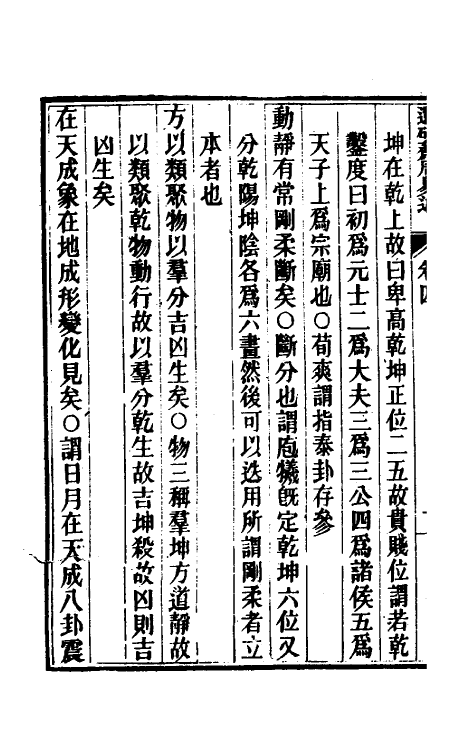 坤在乾上故曰卑高乾坤正位二五故貴賤位謂若乾
鑿度曰初爲元士二爲大夫三爲三公四爲諸侯五爲
天子上爲宗廟也〇荀爽謂指泰卦存參
動靜有常剛柔斷矣〇斷分也謂庖犧旣定乾坤六位又
分乾陽坤陰各爲六畫然後可以迭用所謂剛柔者立
本者也
方以類聚物以羣分吉凶生矣〇物三稱羣坤方道靜故
以類聚乾物動行故以羣分乾生故吉坤殺故凶則吉
凶生矣
在天成象在地成形變化見矣〇謂日月在天成八卦震